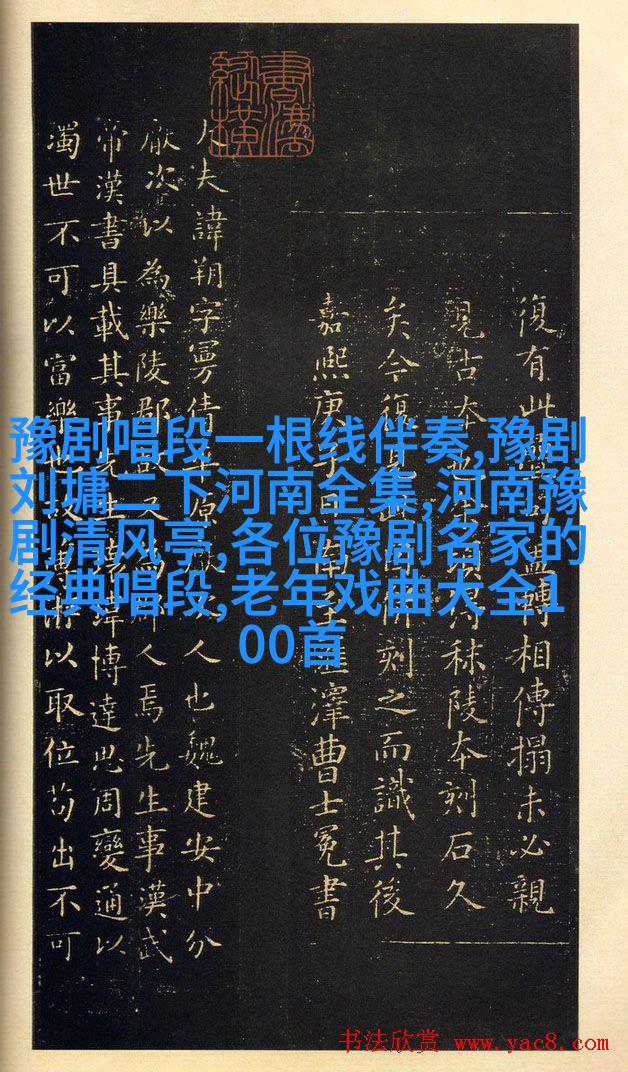 豫剧唱段一根线伴奏,豫剧
刘墉二下河南全集,河南豫
剧清风亭,各位豫剧名家的
经典唱段,老年戏曲大全1
00首
復有此 轉相傳搨未必親
見古本 秣陵本刻石久
矣今復 刻之而識其後
嘉熙庚子 澤曹士冕書
大夫諱朔字曼倩平原 人也魏建安中分
厭次以為樂陵郡故又為郡人焉先生事漢武
帝漢書具載其事 瑋博達思周變通以
濁世不可以富樂 以取位苟出不可
书法欣赏 www.yac8.com